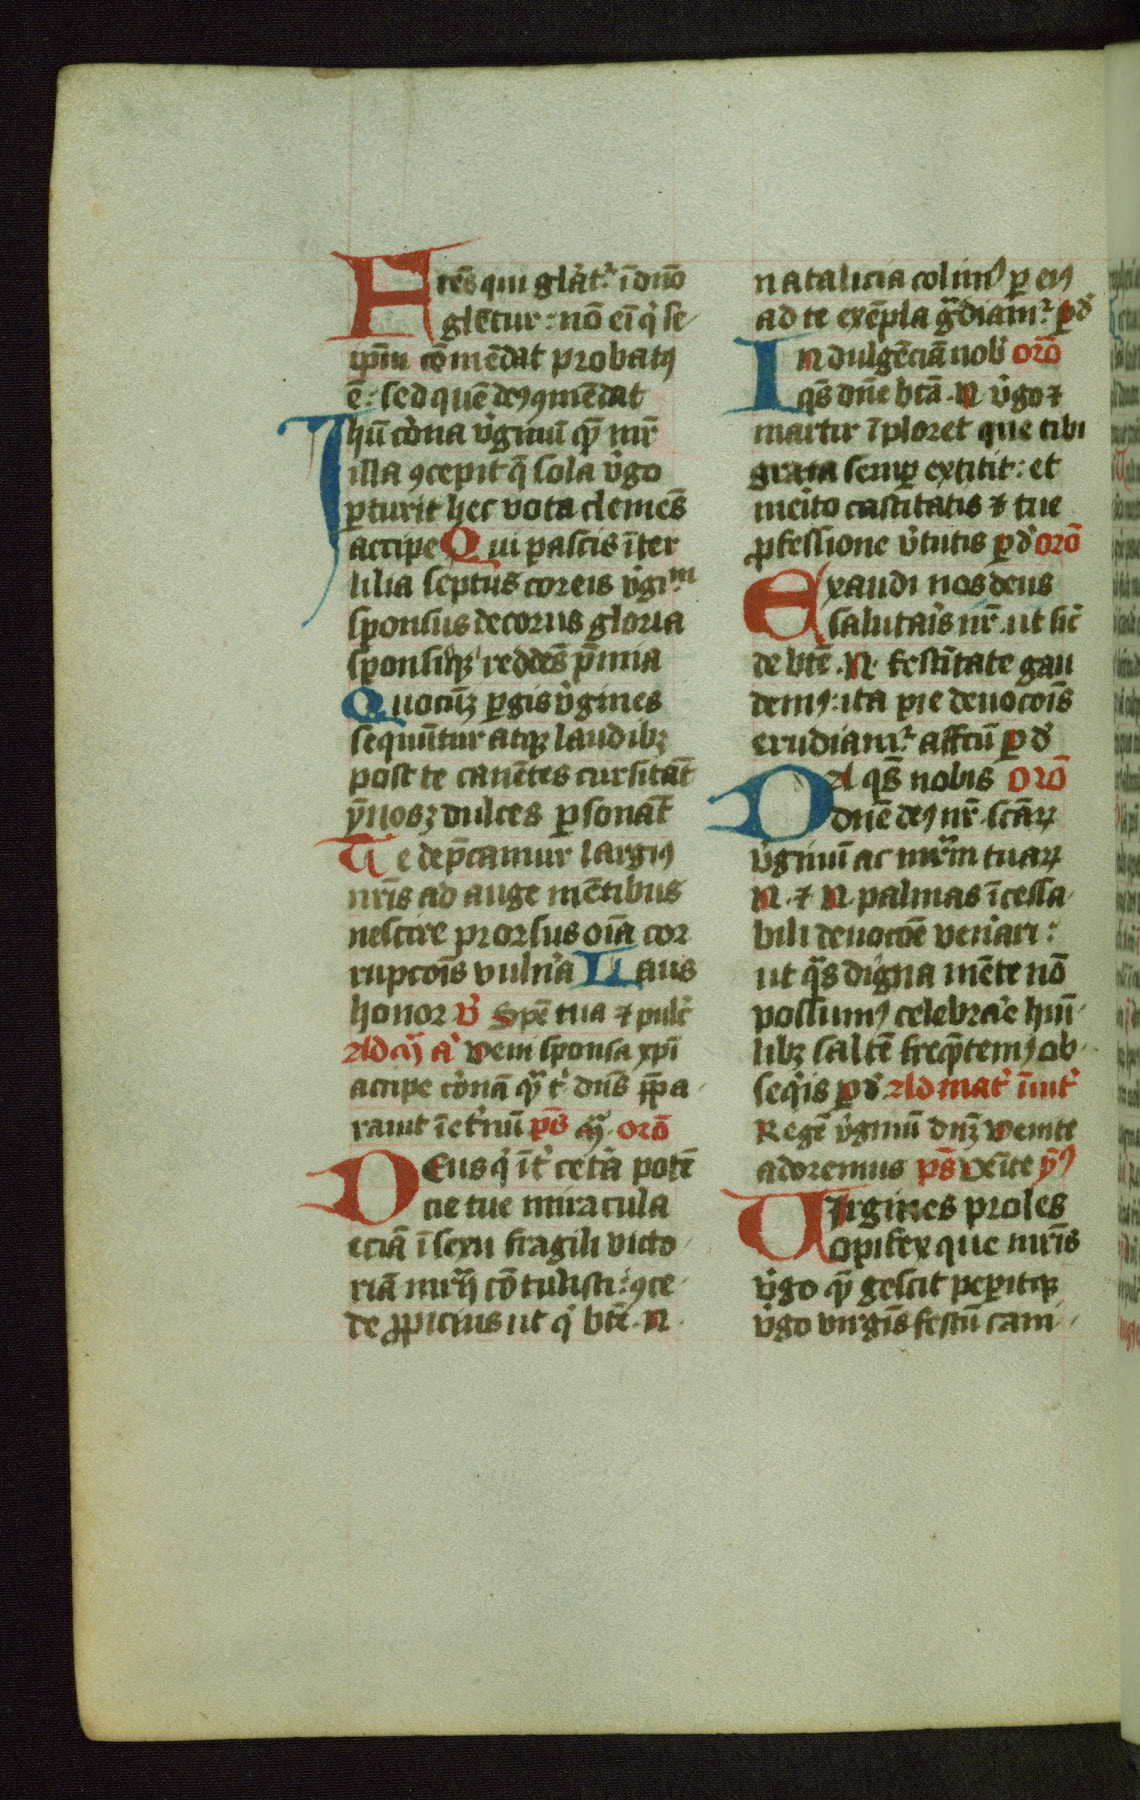 Fr̄es qui gl̓at᷑ ī dn̄o
gl̄etur: nō eī q̓ se-
ip̄m cōmēdat probatꝰ
ē: sed quē deꝰ ꝯmēdat
Ihū coꝛ̓na v̓ginū qm̄ mr̄
illa ꝯcepit q̄ sola v̓go
ꝑturit hec vota clemēs
accipe Qui pascis īter
lilia septus coreis v̓giᵐ
sponsus decorus gloria
sponsisqꝫ reddēs p̄mia
Quocūqꝫ ꝑgis v̓gines
sequūtur atqꝫ laudibꝫ
post te canētes cursitāt
ȳnosqꝫ dulces ꝑsonāt
Te dep̄camur largiꝰ
nr̄is ad auge mētibus
nescire prorsus oīa cor
rupcoīs vuln̓a Laus
honor v̓ Spē tua ⁊ pulc̓
Ad a̓ Veni sponsa xp̄i
accipe co̓nā qᵃ t̓ dn̄s p̄pa-
rauit ī et̓nū ps̄ orō
Deus q̓ īt̓ cet̓a potē
cie tue miracula
eciā ī sexu fragili victo-
riā mr̄ij cōtulisti: ꝯce-
de ꝓpicius ut q̓ btē .N.
natalicia colimꝰ ꝑ eiꝰ
ad te exēpla gᵃdiam᷑ ꝑ d̓
Indulgēciā nob̓ orō
qs̄ dn̄e btā .N. v̓go ⁊
martir īploret que tibi
grata semꝑ extitit: et
meito castitatis ⁊ tue
ꝓfessione v̓tutis ꝑ d̓ orō
Exaudi nos deus
salutais̓ nr̄ .ut sic̓
de btē .N. festītate gau
demꝰ: ita pie deuocoīs
erudiam᷑ affcū ꝑ d̓
Da qs̄ nobis orō
dn̄e deꝰ nr̄ .scāꝝ
v̓ginū ac mr̄m tuaꝝ
N. ⁊ N. palmas īcessa-
bili deuocōe ven̓ari:
ut qᵃs digna mēte nō
possumꝰ celebra̓e hūi-
libꝫ saltē freqn̄temꝰ ob-
seq̓is ꝑ d̓ Ad mat̓ īuit̓
Regē v̓ginū dn̄ꝫ venite
adoremus ps̄ Venīte ȳꝰ
Virgines proles
opifex que mr̄is
v̓go qm̄ gessit peꝑitqꝫ
v̓go virgīs festū cani-